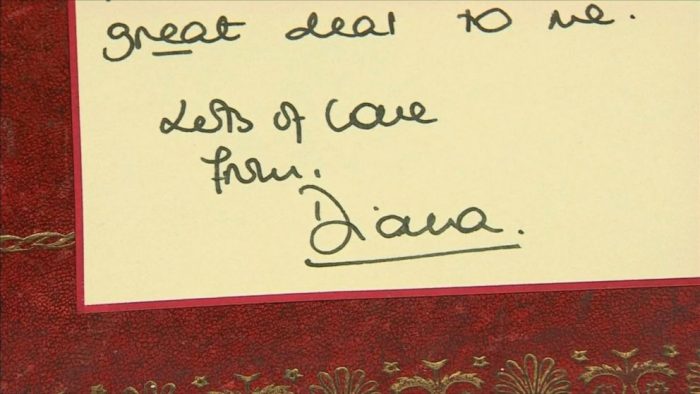 great deal to me.
Lots of love
from.
Diana.